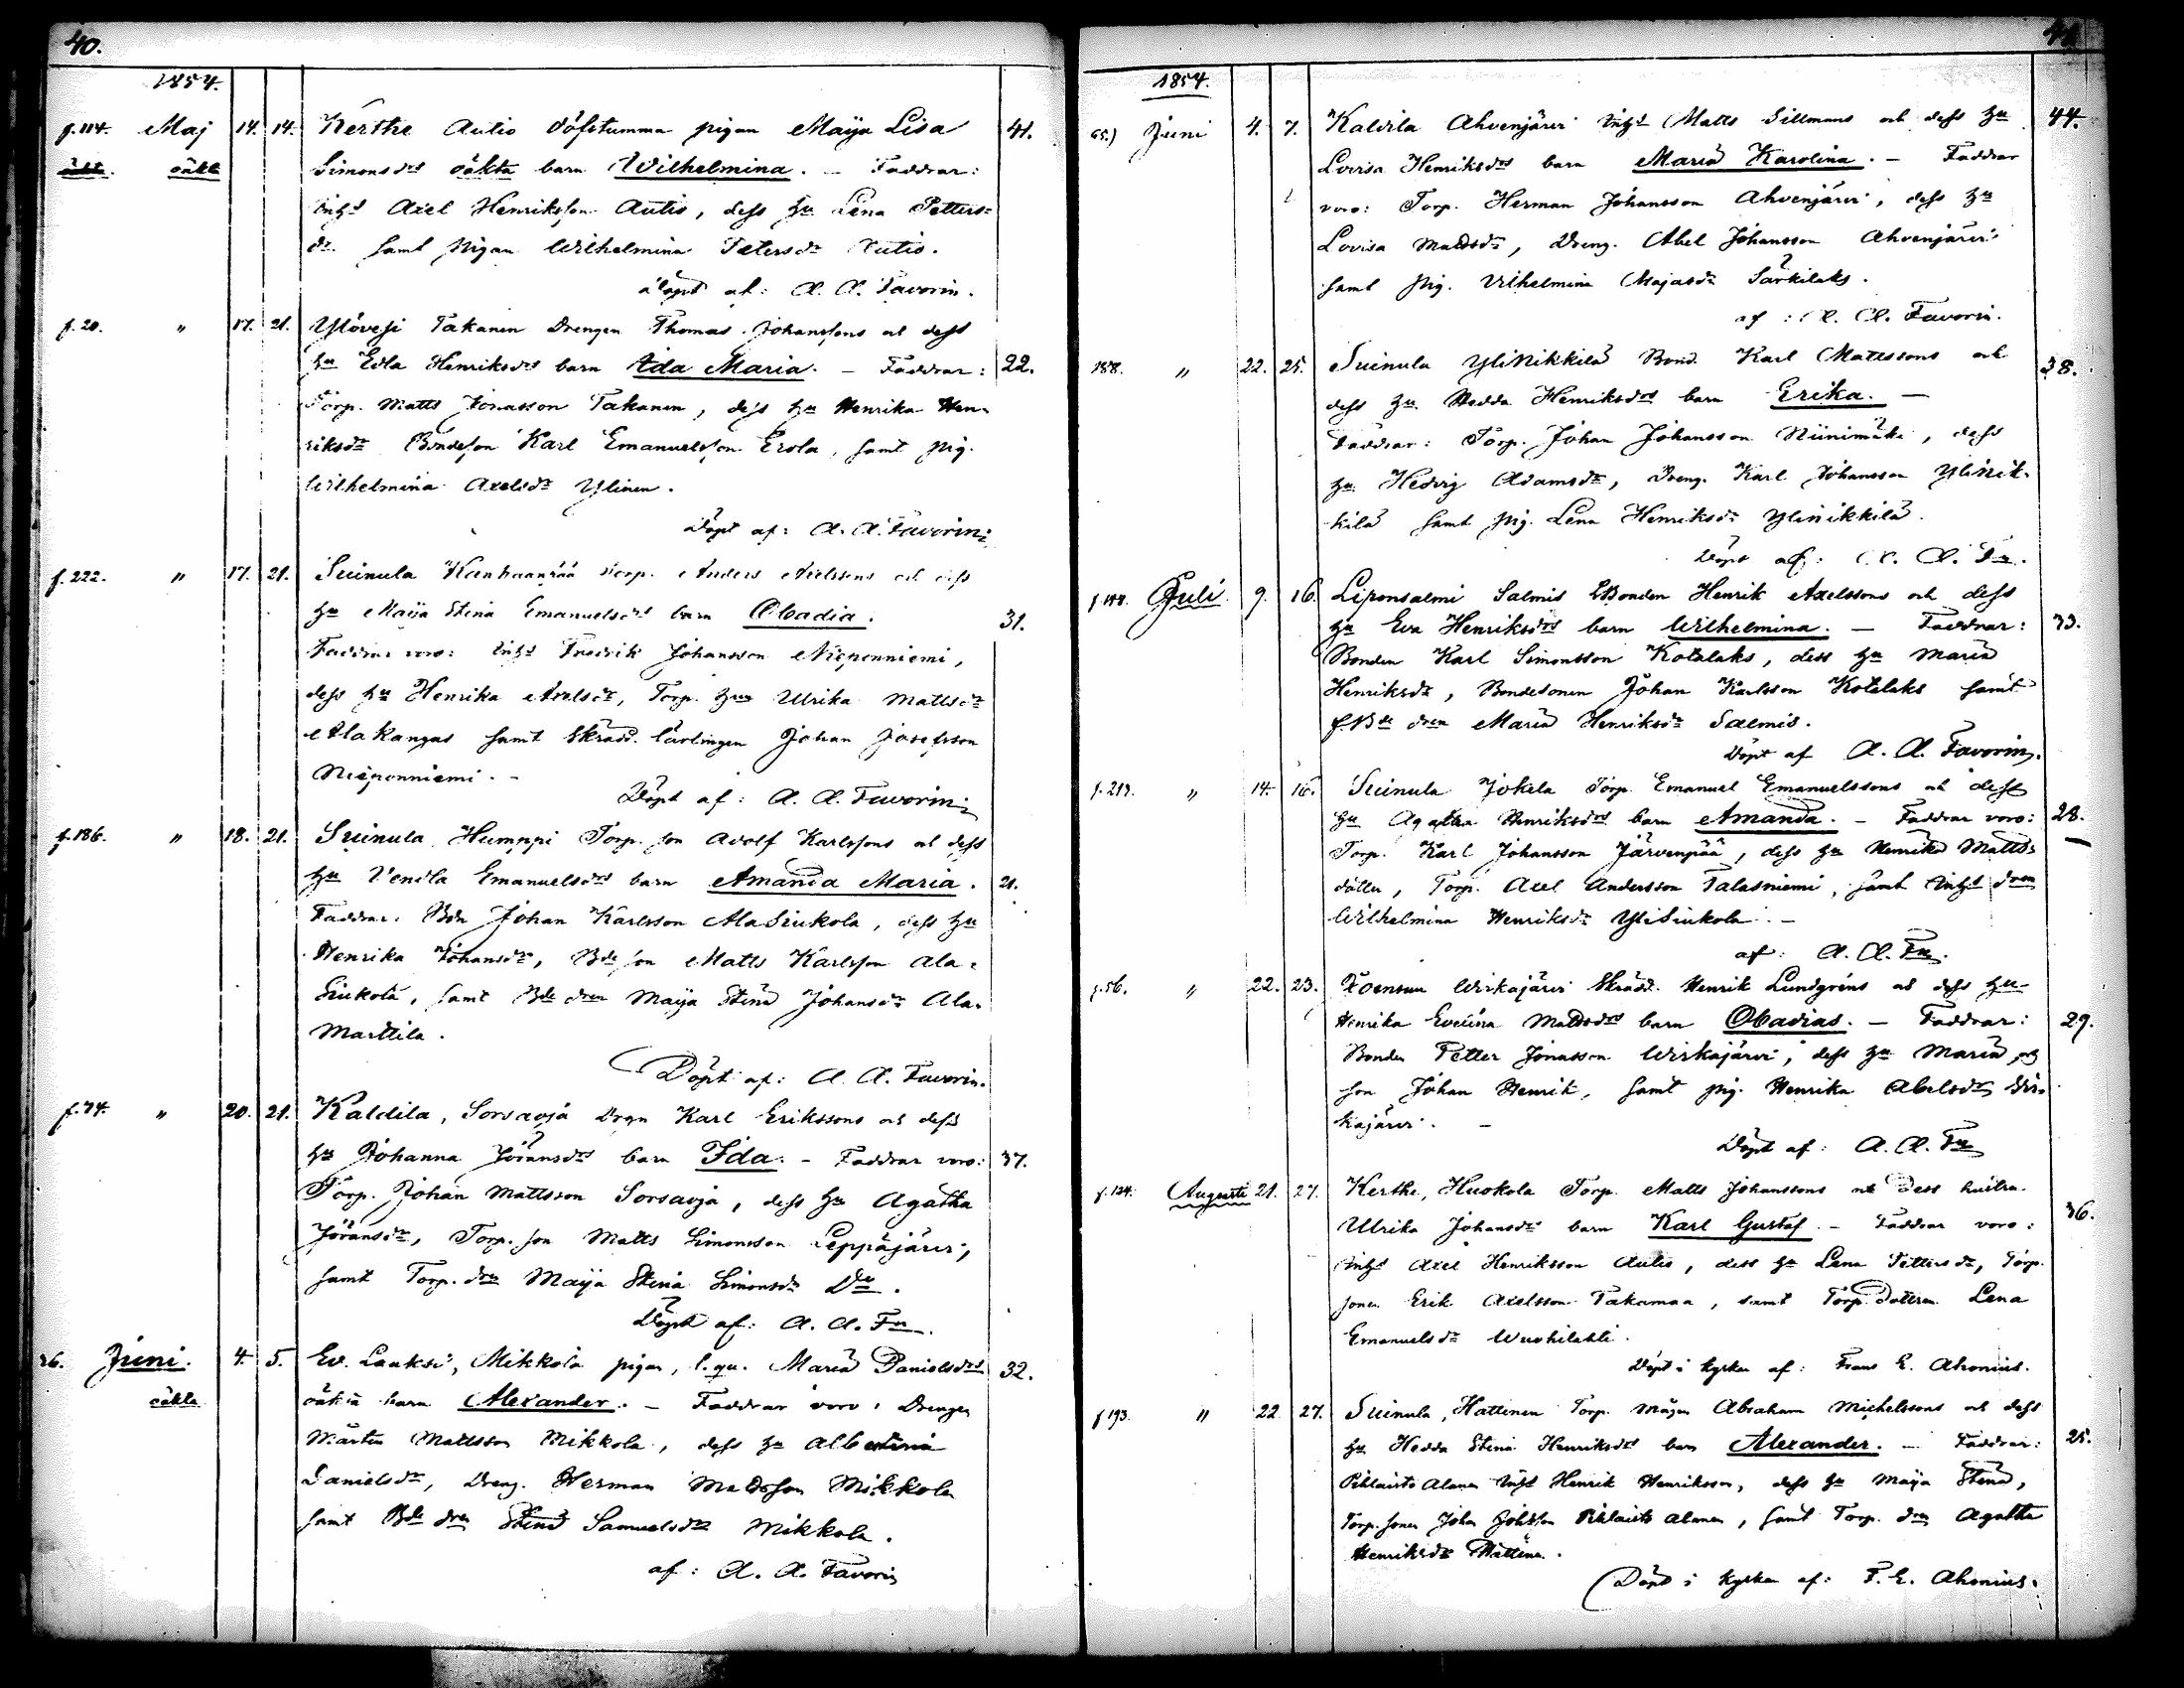 40.
1854.
f. 114. Maj 14. 14. Kerthe Autio döfstumma pigan Maija Lisa 41.
oäkt. oäkt Simonsdrs oäkta barn Wilhelmina. – Faddrar:
Inhs Axel Henriksson Autio, dess hu Lena Petters=
dr. samt pigan Wilhelmina Petersdr Autio.
döpt af: A. A. Favorin.
f. 20. " 17. 21. Ylövesi Takanen Drengen Thomas Johanssons och dess
hu Edla Henriksdrs barn Ida Maria. – Faddrar: 22.
Torp. Matts Jonasson Takanen, dess hu Henrika Hen-
riksdr Bondeson Karl Emanuelsson Erola, samt pig.
Wilhelmina Axelsdr Ylinen.
Döpt af: A. A. Favorin.
f. 222. " 17. 21. Suinula Kanhaanpää Torp. Anders Axelssons och dess
hu Maija Stina Emanuelsdrs barn Obadia. 31.
Faddrar voro: Inhs Fredrik Johansson Nieponniemi,
dess hu Henrika Axelsdr, Torp. hun Ulrika Mattsdr
Alakangas samt Skrädd. lärlingen Johan Josefsson
Nieponniemi. –
Döpt af: A. A. Favorin.
f. 186. " 18. 21. Suinula Humppi Torp. son Adolf Karlssons och dess
hu Vendla Emanuelsdrs barn Amanda Maria. 21.
Faddrar: Bdn Johan Karlsson AlaSiukola, dess hu
Henrika Johansdr, Bde son Matts Karlsson Ala=
Siukola, samt Bde dren Maija Stina Johansdr Ala-
Marttila.
Döpt af: A. A. Favorin.
f. 74. " 20. 21. Kaldila, Sorsaoja Drgn Karl Erikssons och dess
hu Johanna Jöransdrs barn Ida. – Faddrar voro: 37.
Torp. Johan Mattsson Sorsaoja, dess hu Agatha
Jöransdr, Torp. son Matts Simonsson Leppäjärvi,
samt Torp. dren Maija Stina Simonsdr Do.
Döpt af: A. A. Fn.
36. Juni. 4. 5. Ev. Laukso, Mikkola pigan, l. qu. Maria Danielsdrs 32.
oäkta oäkta barn Alexander. – Faddrar voro: Drengen
Mårten Mattsson Mikkola, dess hu Albertina
Danielsdr, Dreng. Herman Mattsson Mikkola
samt Bde dren Stina Samuelsdr Mikkola.
af: A. A. Favorin
41
1854.
65.) Juni 4. 7. Kaldila Ahvenjärvi Inhs Matts Sillmans och dess hu 44.
Lovisa Henriksdrs barn Maria Karolina. – Faddrar
voro: Torp. Herman Johansson Ahvenjärvi, dess hu
Lovisa Mattsdr, Dreng. Abel Johansson Ahvenjärvi
samt pig. Vilhelmina Majasdr Särkilaks.
af: A. A. Favorin.
188. " 22. 25. Suinula YliNikkilä Bond. Karl Mattssons och 38.
dess hu Hedda Henriksdrs barn Erika. –
Faddrar: Torp. Johan Johansson Niinimäki, dess
hu Hedvig Adamsdr, Dreng. Karl Johansson YliNik-
kilä samt pig. Lena Henriksdr YliNikkilä.
Döpt af: A. A. Fn.
f. 144. Juli. 9. 16. Liponsalmi Salmis Bonden Henrik Axelssons och dess
hu Eva Henriksdrs barn Wilhelmina. – Faddrar: 33.
Bonden Karl Simonsson Kotalaks, dess hu Maria
Henriksdr, Bondesonen Johan Karlsson Kotalaks samt
Bde dren Maria Henriksdr Salmis.
Döpt af A. A. Favorin.
f. 219. " 14. 16. Suinula Jokela Torp. Emanuel Emanuelssons och dess
hu Agatha Henriksdrs barn Amanda. – Faddrar voro: 28.
Torp. Karl Johansson Järvenpää, dess hu Henrika Matts=
dotter, Torp. Axel Andersson Talasniemi, samt Inhs dren
Wilhelmina Henriksdr YliSiukola. –
af: A. A. Fn.
f. 56. " 22. 23. Röensuu Wirkajärvi Skrädd. Henrik Lundgréns och dess hu
Henrika Evelina Mattsdrs barn Obadias. – Faddrar: 29.
Bonden Petter Jonasson Wirkajärvi, dess hu Maria, och
son Johan Henrik, samt pig. Henrika Abelsdr Wir-
kajärvi. –
Döpt af: A. A. Fn
f. 124. Augusti 21. 27. Kerthe, Huokola Torp. Matts Johanssons och dess hustru
Ulrika Johansdrs barn Karl Gustaf. – Faddrar voro: 36.
Inhs Axel Henriksson Autio, dess hu Lena Pettersdr, Torp.
sonen Erik Axelsson Takamaa, samt Torp. dottren Lena
Emanuelsdr Wuohilahti.
Döpt i kyrkan af: Frans E. Ahonius.
f 193. " 22 27. Suinula, Hattinen Torp. mågen Abraham Michelssons och dess
hu Hedda Stina Henriksdrs barn Alexander. – Faddrar: 25.
Pihlaisto Alanen Inhs Henrik Henriksson, dess hu Maija Stina,
Torp. sonen Johan Johansson Pihlaisto Alanen, samt Torp. dren Agatha
Henriksdr Hattinen.
Döpt i kyrkan af: F. E. Ahonius.